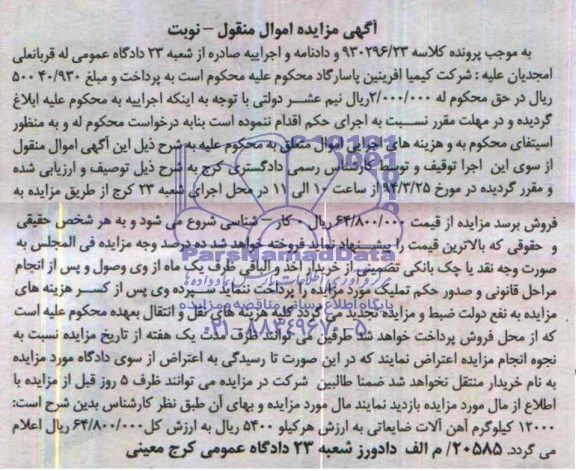 آگهی مزایده اموال منقول – نوبت
به موجب پرونده کلاسه ۹۳۰۲۹۶/۲۳ و دادنامه و اجراییه صادره از شعبه ۲۳ دادگاه عمومی له قربانعلی
امجدیان علیه : شرکت کیمیا افرینین پاسارگاد محکوم علیه محکوم است به پرداخت و مبلغ ۵۰۰۴۰/۹۳۰
ریال در حق محکوم له ۲/۰۰۰/۰۰۰ریال نیم عشر دولتی با توجه به اینکه اجراییه به محکوم علیه ابلاغ
گردیده و در مهلت مقرر نسبت به اجرای حکم اقدام ننموده است بنابه درخواست محکوم له و به منظور
استیفای محکوم به و هزینه های اجرایی اموال متعلق به محکوم علیه به شرح ذیل این آگهی اموال منقول
از سوی این اجرا توقیف و توسط کارشناس رسمی دادگستری کرج به شرح ذیل توصیف و ارزیابی شده
و مقرر گردیده در مورخ ۹۴/۳/۲۵ از ساعت ۱۰ الی ۱۱ در محل اجرای شعبه ۲۳ کرج از طریق مزایده به
فروش برسد مزایده از قیمت ۶۴/۸۰۰/۰۰۰ریال ۰ کار – شناسی شروع می شود و به هر شخص حقیقی
و حقوقی که بالاترین قیمت را پیشنهاد نماید فروخته خواهد شد ده درصد وجه مزایده فی المجلس به
صورت وجه نقد یا چک بانکی تضمینی از خریدار اخذ و الباقی ظرف یک ماه از وی وصول و پس از انجام
مراحل قانونی و صدور حکم تملیک مورد مزایده را پرداخت ننماید سپرده وی پس از کسر هزینه های
مزایده به نفع دولت ضبط و مزایده تجدید می گردد کلیه هزینه های نقل و انتقال بعهده محکوم علیه است
که از محل فروش پرداخت خواهد شد طرفین می توانند ظرف مدت یک هفته از تاریخ مزایده نسبت به
نحوه انجام مزایده اعتراض نمایند که در این صورت تا رسیدگی به اعتراض از سوی دادگاه مورد مزایده
به نام خریدار منتقل نخواهد شد ضمنا طالبین شرکت در مزایده می توانند ظرف ۵ روز قبل از مزایده با
اطلاع از مال مورد مزایده بازدید نمایند مال مورد مزایده و بهای آن طبق نظر کارشناس بدین شرح است:
۱۲۰۰۰ کیلوگرم آهن آلات ضایعاتی به ارزش هرکیلو ۵۴۰۰ ریال به ارزش کل ۶۴/۸۰۰/۰۰۰ ریال اعلام
می گردد. ۲۰۵۸۵/ م الف دادورز شعبه ۲۳ دادگاه عمومی کرج معینی
ParsNamadData
پایگاه اطلاع رسانی مناقصه و مزایده
۰۲۱-۸۸۳۴۹۶۷۰-۵